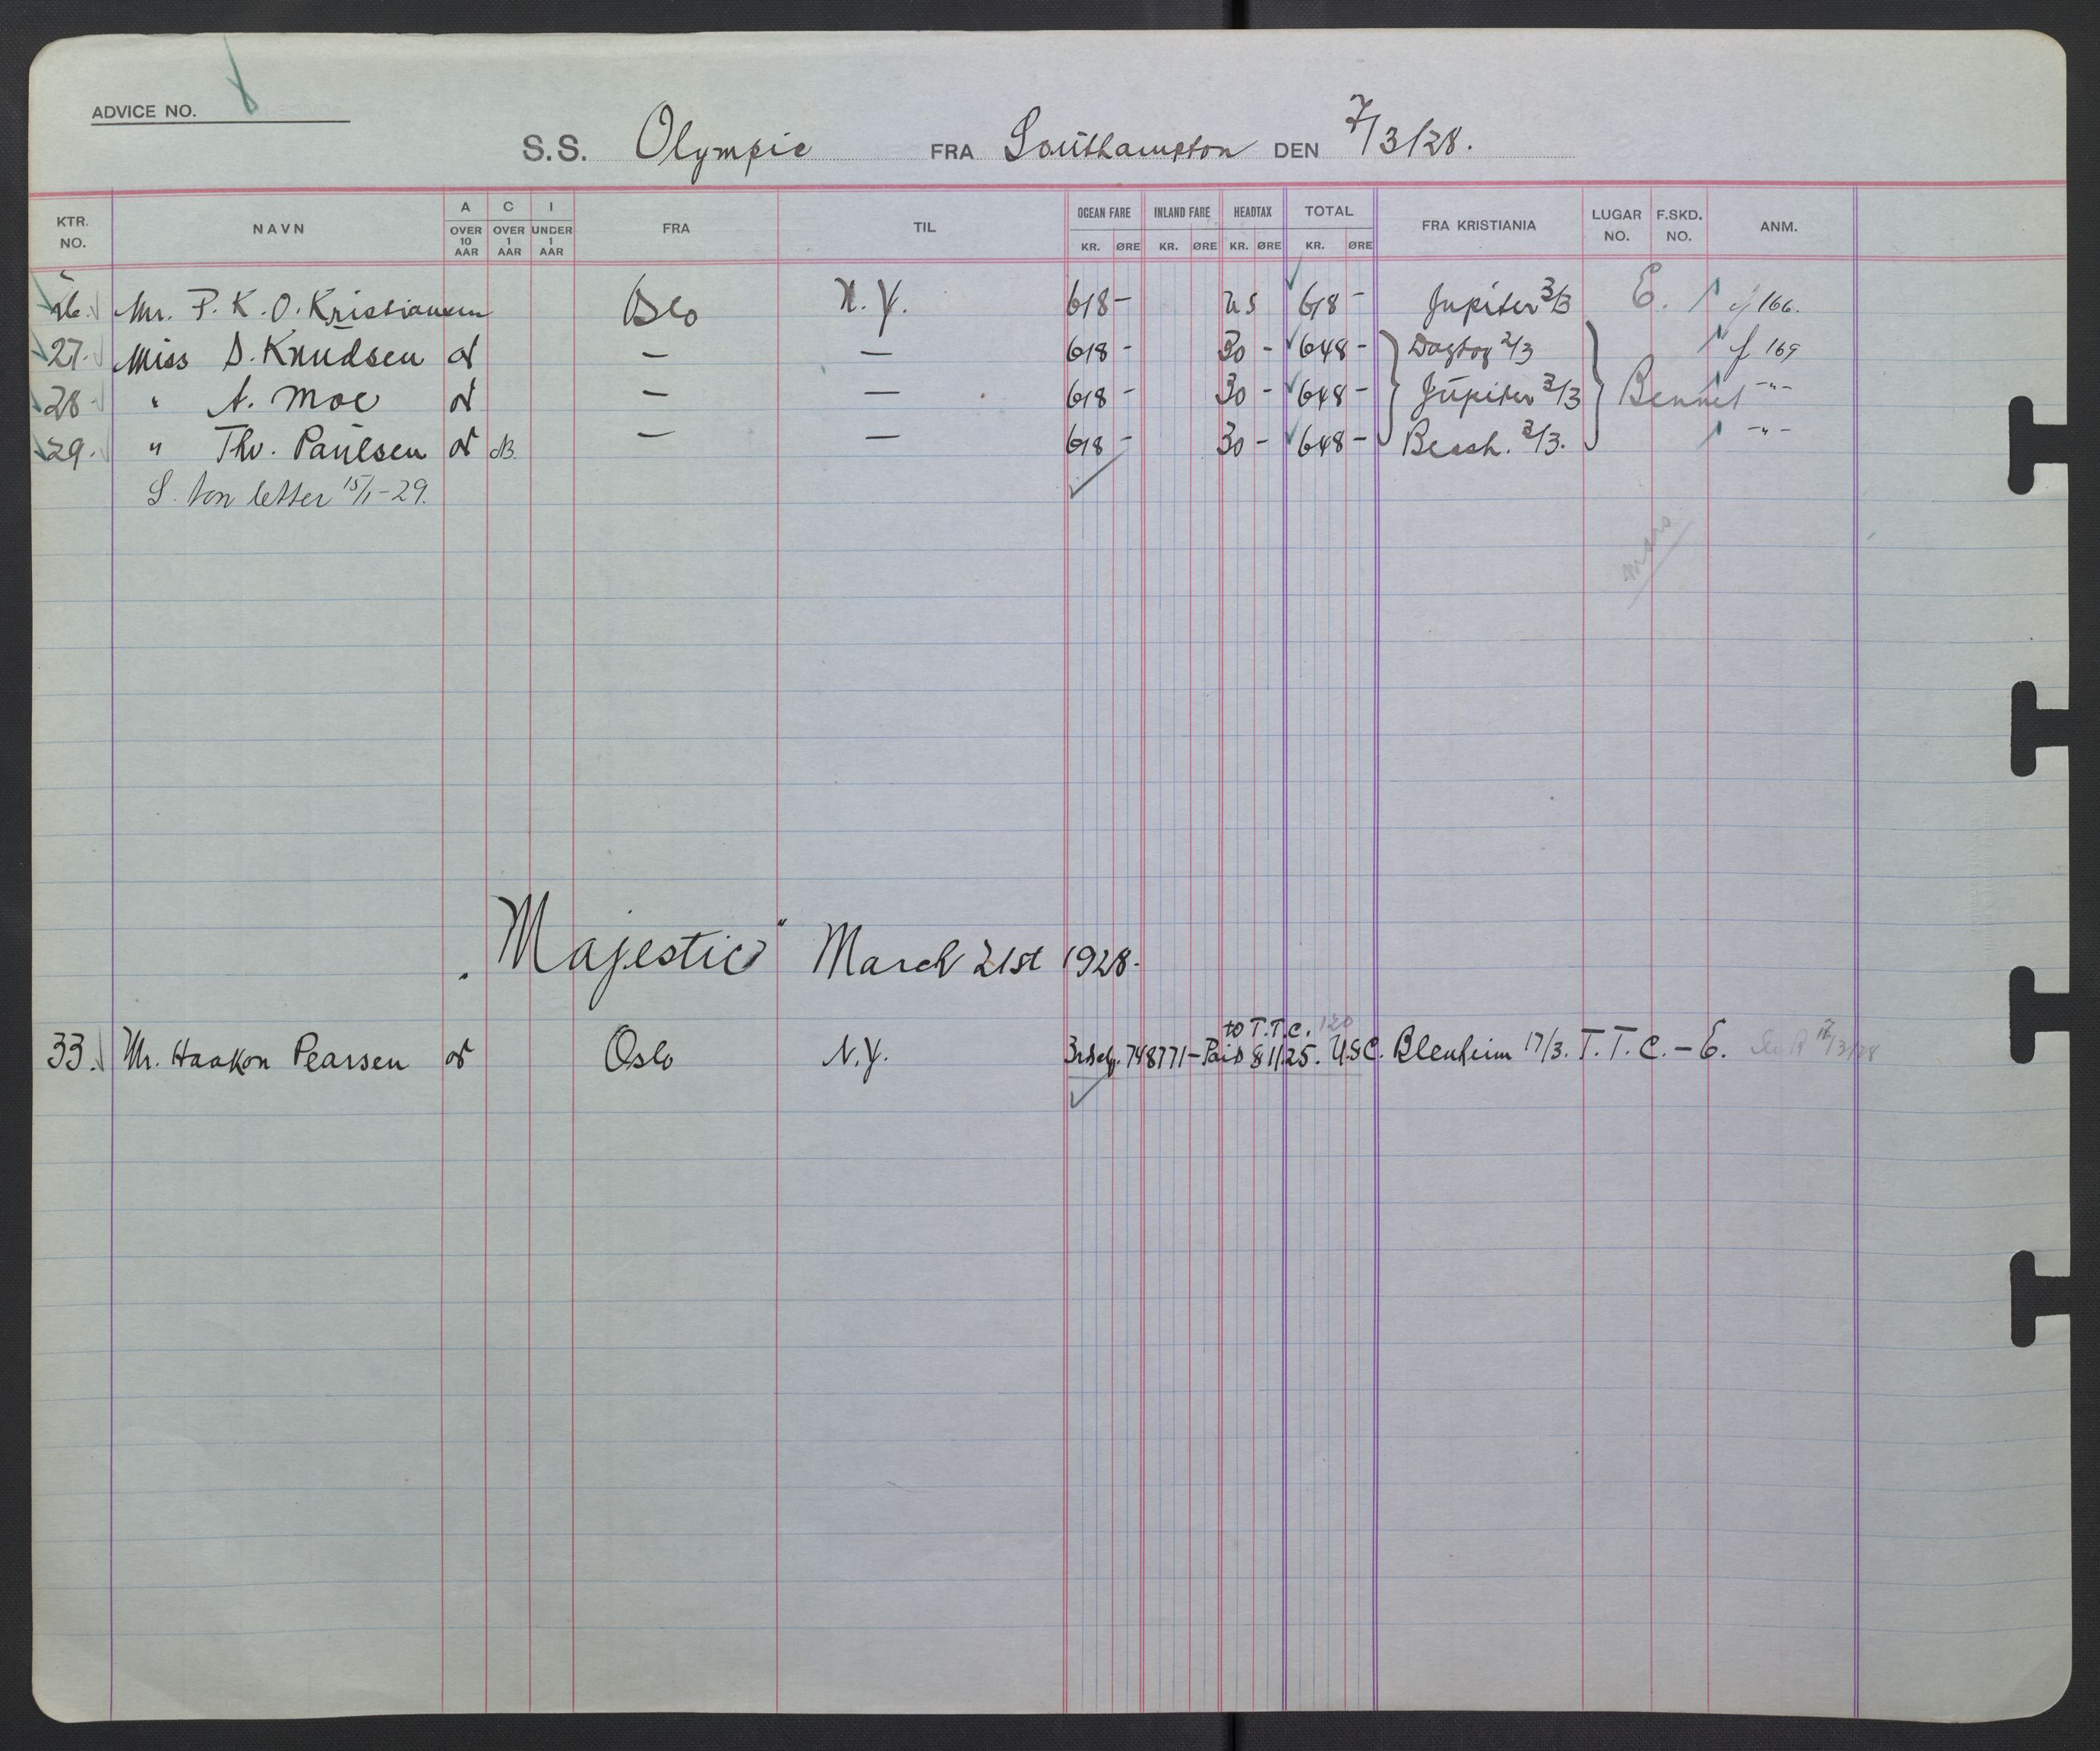 ADVICE NO.
S.S. Olympic FRA Southampton DEN 7/3/28.
KTR. NO. NAVN A OVER 10 AAR C OVER 1 AAR I UNDER 1 AAR FRA TIL OCEAN FARE KR. ØRE INLAND FARE KR. ØRE HEADTAX KR. ØRE TOTAL KR. ØRE FRA KRISTIANIA LUGAR NO. F.SKD. NO. ANM.
26. Mr. P. K. O. Kristiansen Oslo N.Y. 618 - US 618 - Jupiter 3/3 E. 166.
27. Miss S. Knudsen — — 618 - 30 - 648 - Dagtog 2/3 169
28 " A. Moe — — 618 - 30 - 648 - Jupiter 3/3 Bennet -"-
29. " Thv. Paulsen — — 618 - 30 - 648 - Bessh. 3/3. -"-
S. ton letter 15/1-29.
mars
„Majestic" March 21st 1928.
to T.T.C. 120
33. Mr. Haakon Pearsen Oslo N.Y. 748771 - Paid $ 1125. USC. Blenheim 17/3. T.T.C. - E.